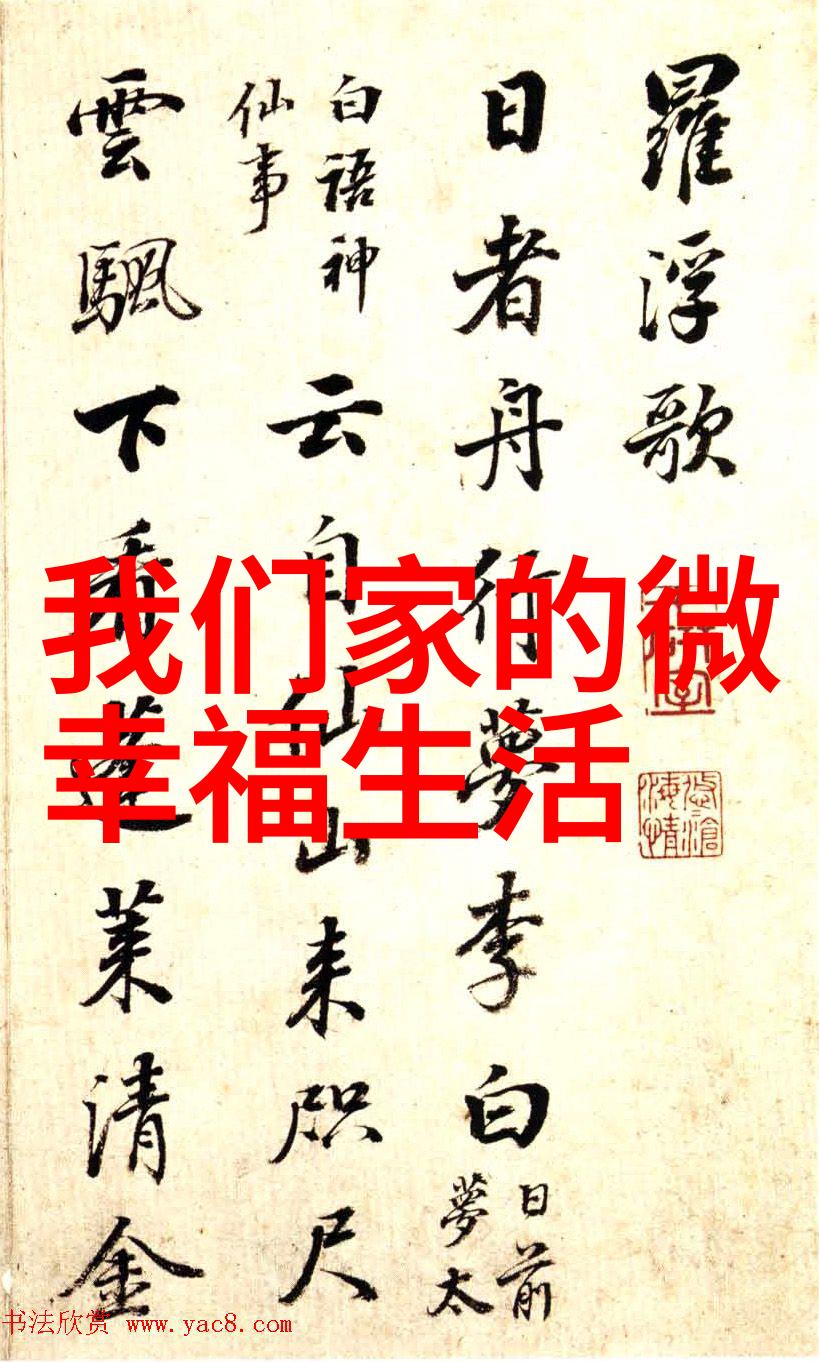 羅浮歌
日者舟行夢李白
日前
夢太
白語神
仙事
云自仙山来咫尺
雲颿下看蓬莱清金
我们家的微
幸福生活
书法欣赏 www.yac8.com